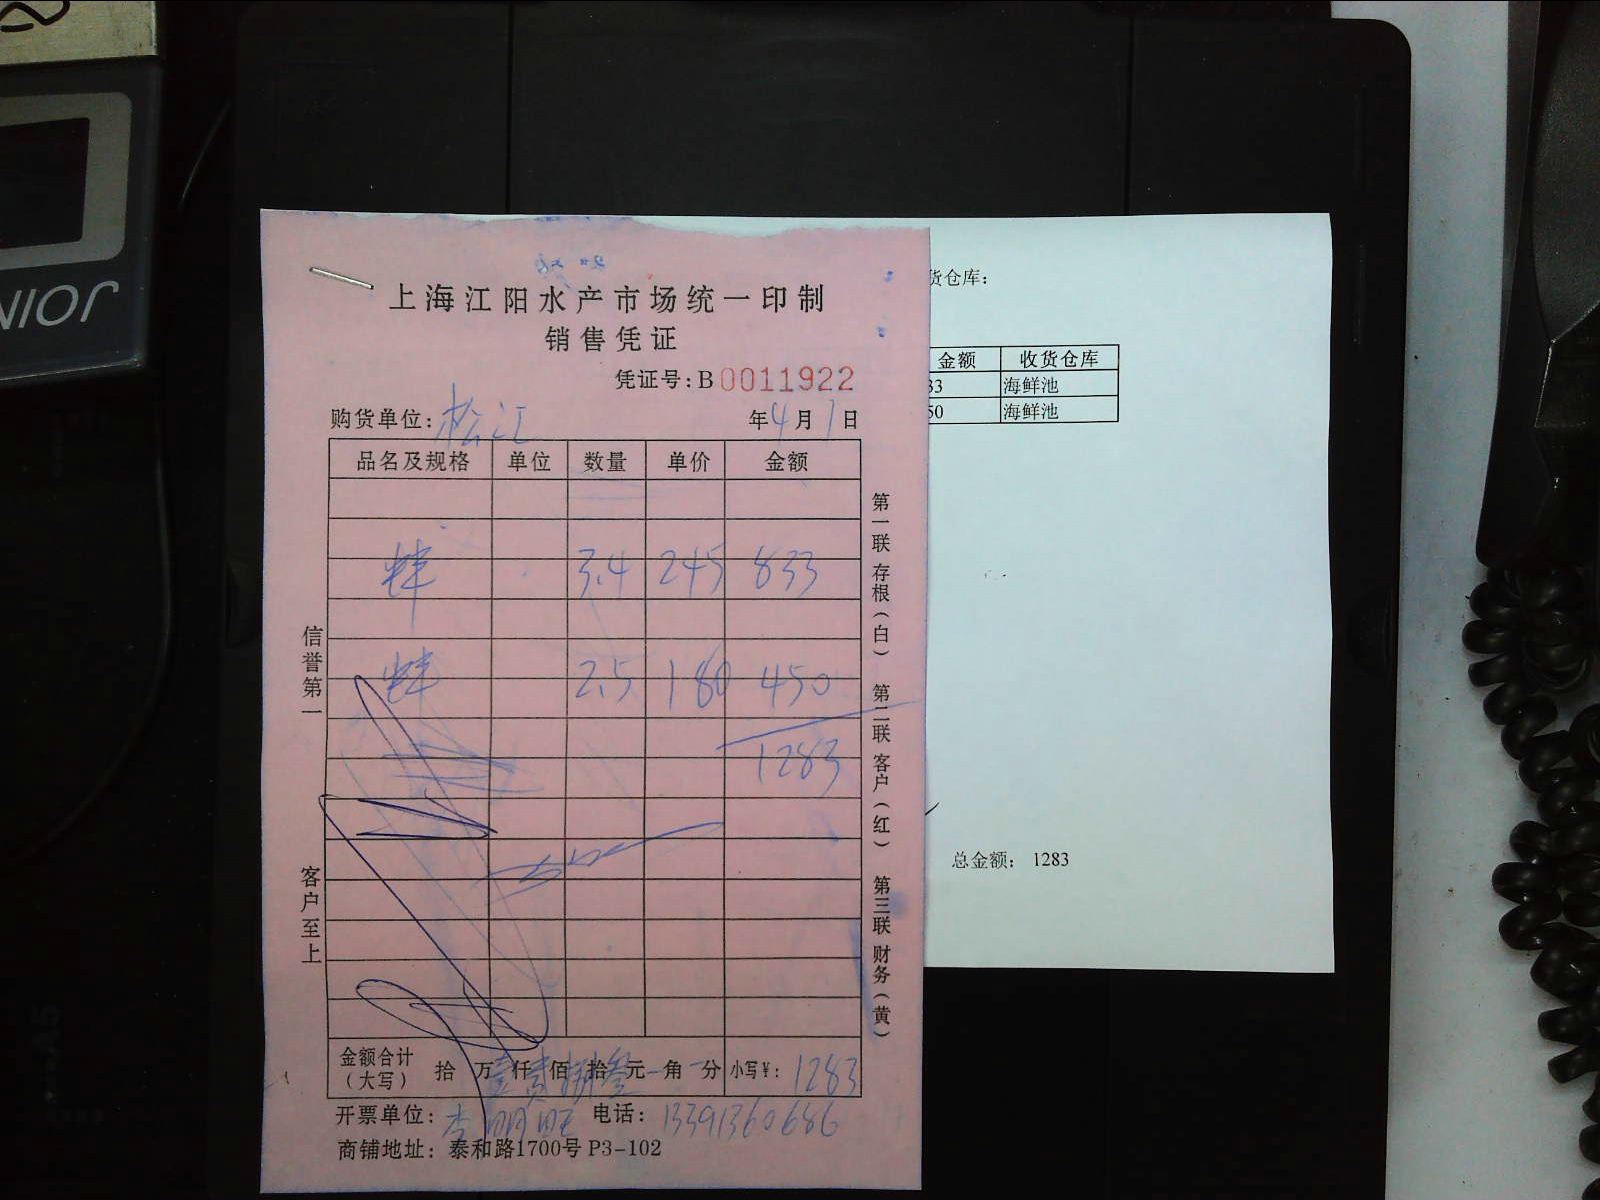 JOIN
上海江阳水产市场统一印制
销售凭证
凭证号:B 0011922
购货单位: 松江 年4月1日
品名及规格 单位 数量 单价 金额
蚌 3.4 245 833
蚌 2.5 180 450
1283
金额合计(大写) 拾 万壹仟贰佰捌拾叁元 角 分 小写¥: 1283
开票单位: 李明旺 电话: 13391360686
商铺地址: 泰和路1700号 P3-102
信誉第一
客户至上
第一联 存根(白) 第二联 客户(红) 第三联 财务(黄)
货仓库:
金额 收货仓库
33 海鲜池
50 海鲜池
总金额: 1283